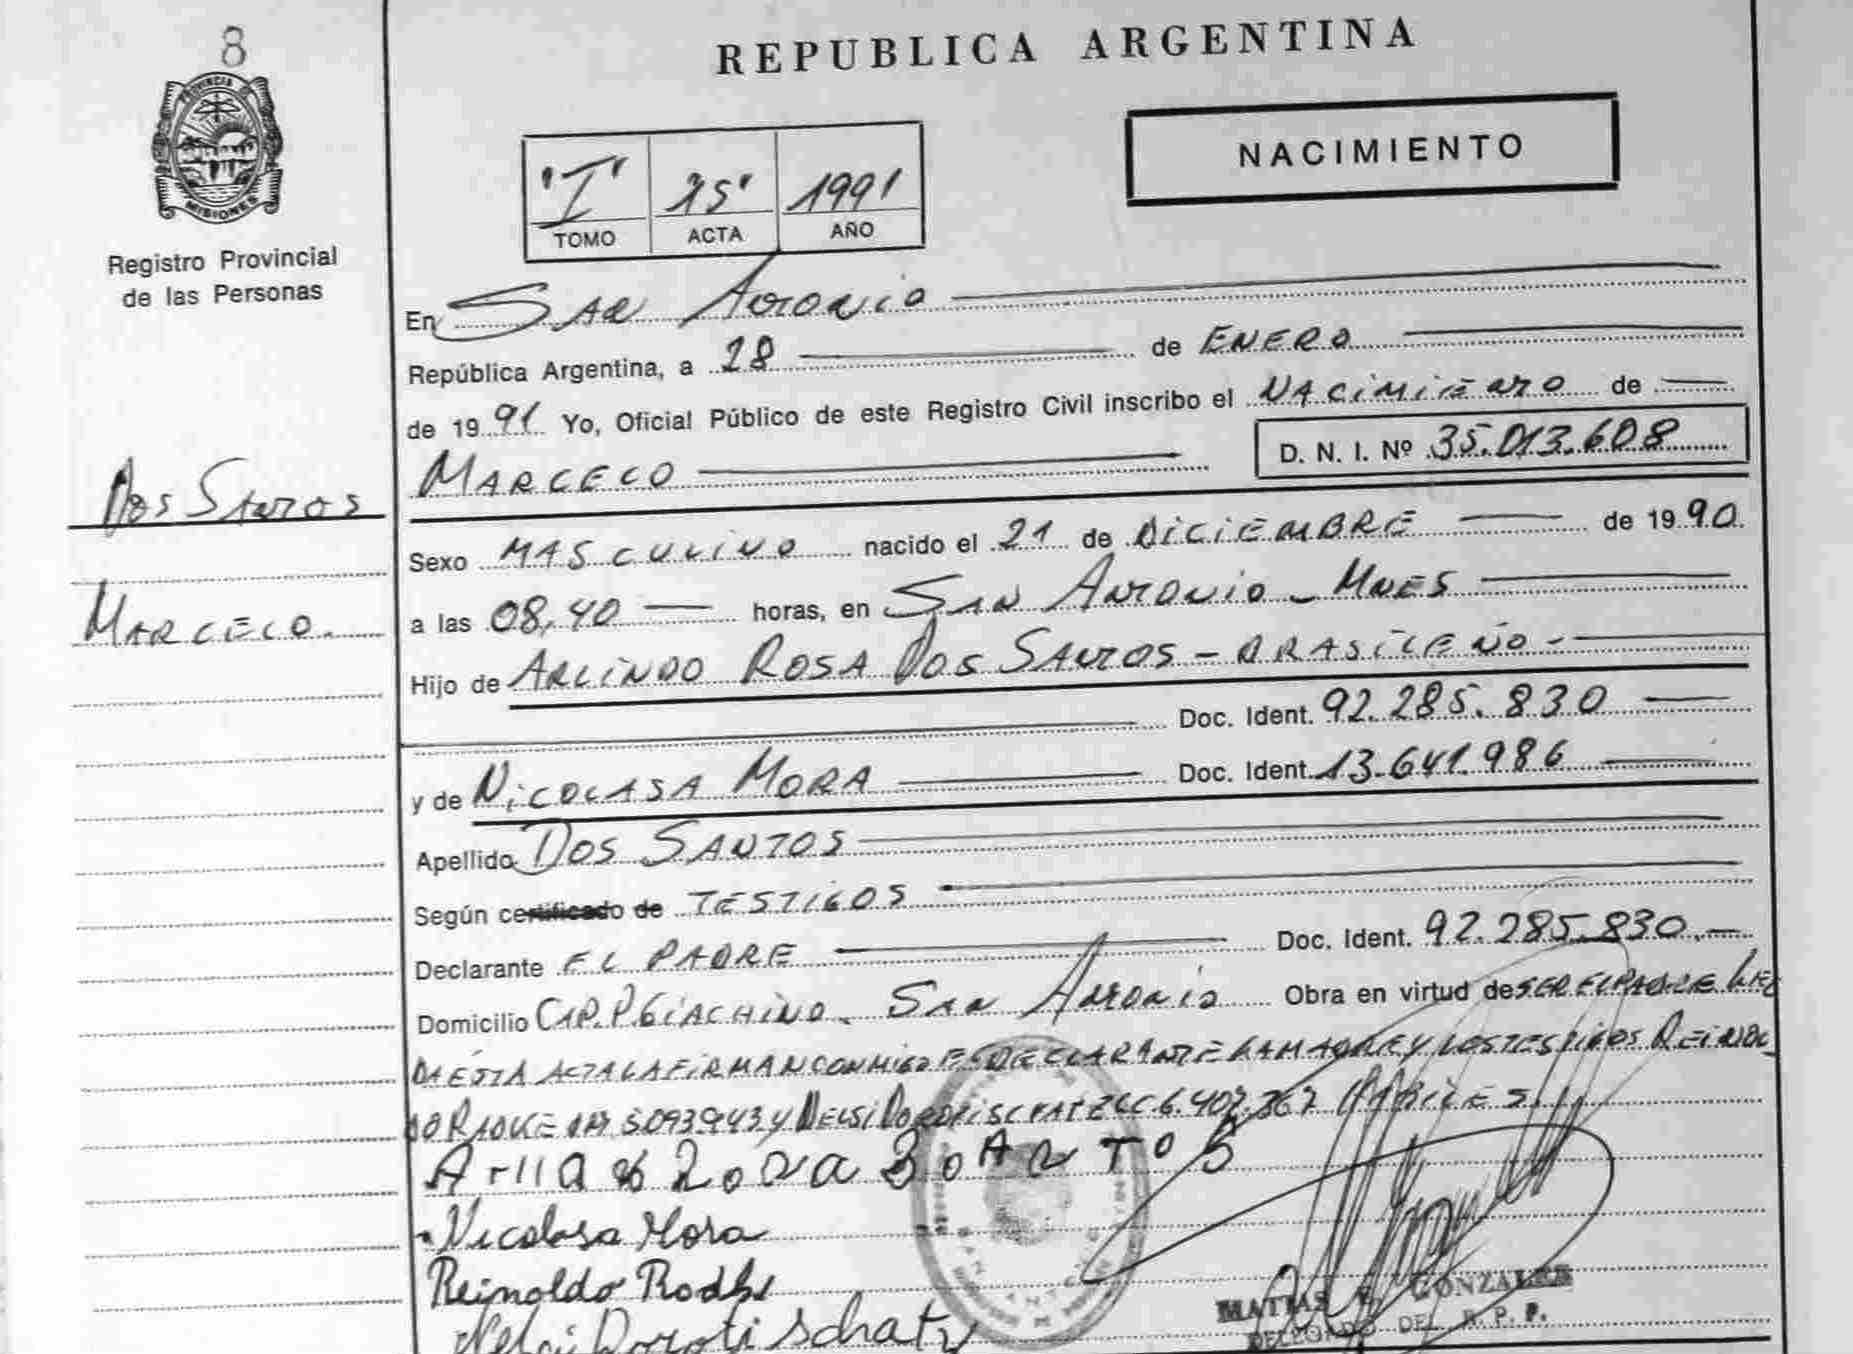 8
REPUBLICA ARGENTINA
PROVINCIA DE
MISIONES
Registro Provincial
de las Personas
NACIMIENTO
"I" 15" 1991
TOMO ACTA AÑO
En San Antonio
República Argentina, a 28 de ENERO
de 1991 Yo, Oficial Público de este Registro Civil inscribo el NACIMIENTO de
D. N. I. Nº 35.013.608
MARCELO
DOS SANTOS
MARCELO.
Sexo MASCULINO nacido el 21 de DICIEMBRE de 1990.
a las 08,40 horas, en SAN ANTONIO - MNES
Hijo de ARLINDO ROSA DOS SANTOS - BRASILEÑO -
Doc. Ident. 92.285.830
y de NICOLASA MORA Doc. Ident. 13.641.986
Apellido DOS SANTOS
Según certificado de TESTIGOS
Declarante EL PADRE Doc. Ident. 92.285.830.-
Domicilio CAP. P. GIACHINO. SAN ANTONIO Obra en virtud de SER EL PADRE LEI
DA ÉSTA ACTA LA FIRMAN CONMIGO EL DECLARANTE LA MADRE Y LOS TESTIGOS REINOL
DO 5093943 Y NELSI DOROTI SCHATZ 6.402.367
Nicolasa Mora
Reinoldo
Nelsi Doroti Schatz
MATIAS GONZALEZ
DEL R. P. P.